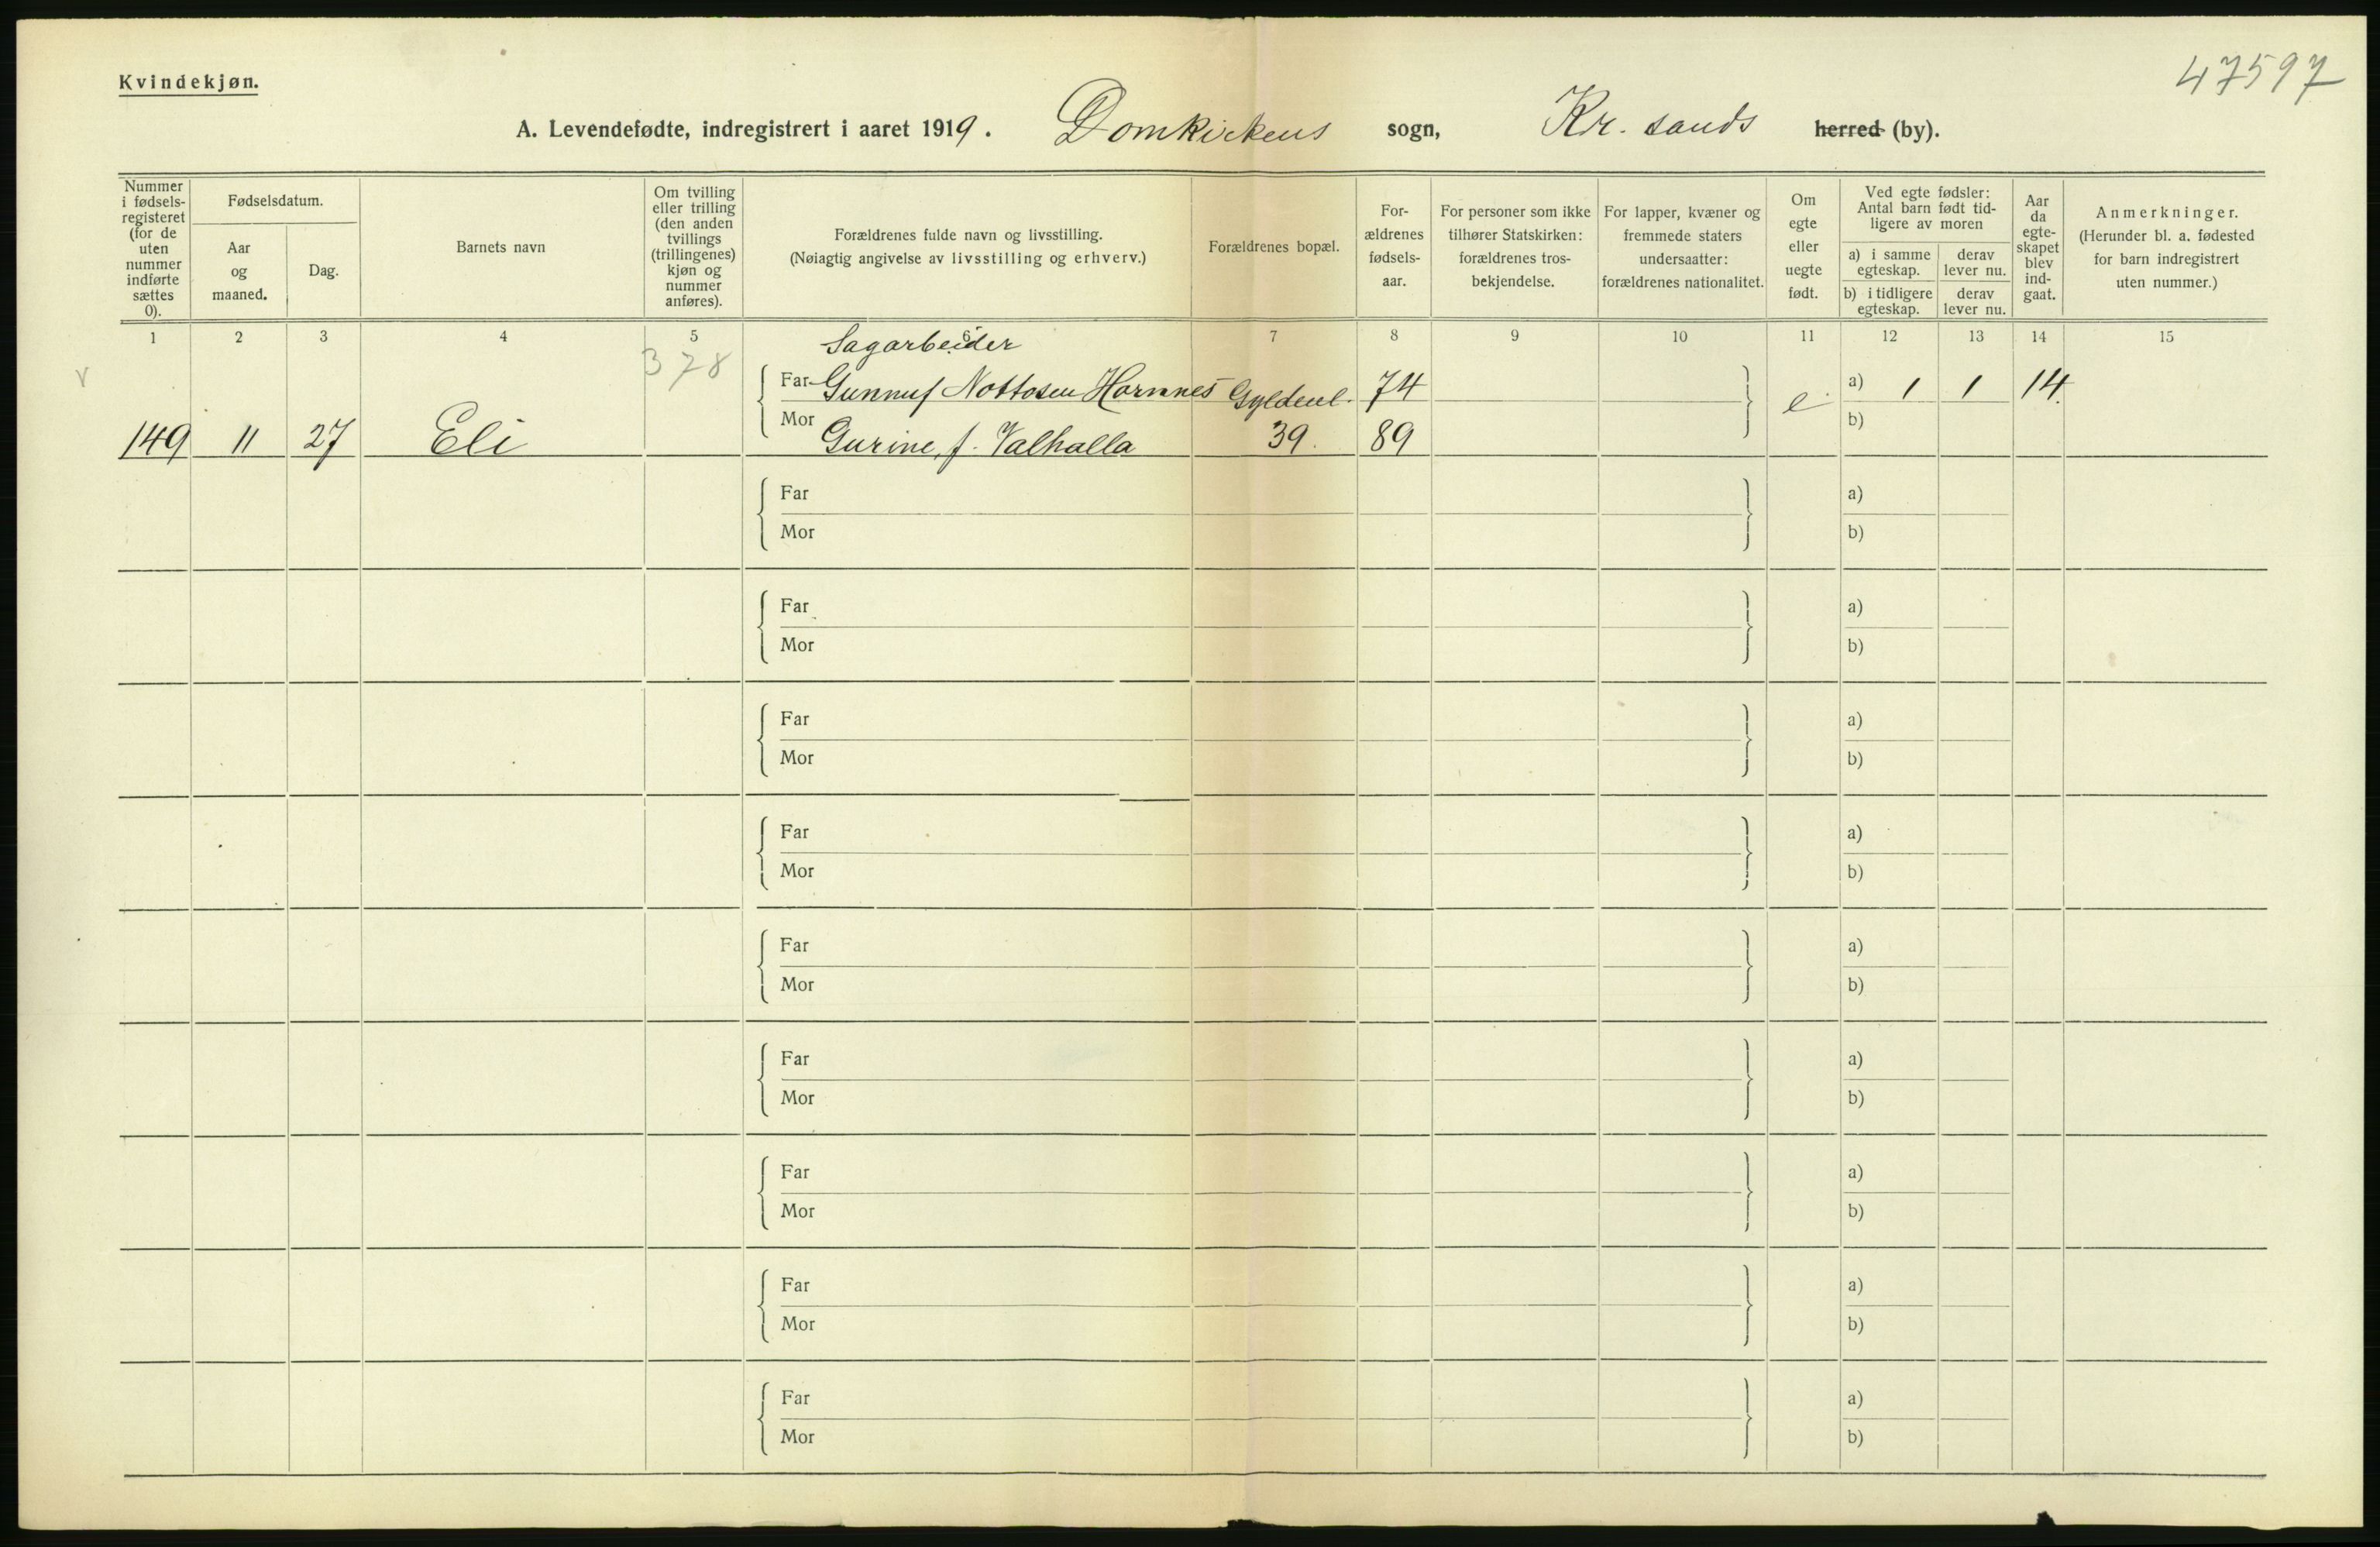 Kvindekjøn.
47597
A. Levendefødte, indregistrert i aaret 1919. Domkirkens sogn, Kr. sands herred (by).
Nummer i fødsels-registeret (for de uten nummer indførte sættes 0).
Fødselsdatum.
Aar og maaned.
Dag.
Barnets navn
Om tvilling eller trilling (den anden tvillings (trillingenes) kjøn og nummer anføres).
Forældrenes fulde navn og livsstilling.
(Nøiagtig angivelse av livsstilling og erhverv.)
Forældrenes bopæl.
For-ældrenes fødsels-aar.
For personer som ikke tilhører Statskirken: forældrenes tros-bekjendelse.
For lapper, kvæner og fremmede staters undersaatter: forældrenes nationalitet.
Om egte eller uegte født.
Ved egte fødsler: Antal barn født tid-ligere av moren
a) i samme egteskap.
derav lever nu.
b) i tidligere egteskap.
derav lever nu.
Aar da egte-skapet blev ind-gaat.
Anmerkninger.
(Herunder bl. a. fødested for barn indregistrert uten nummer.)
1 2 3 4 5 6 7 8 9 10 11 12 13 14 15
v 378 Sagarbeider
Far Gunnuf Nottosen Hornnes Gyldenl. 74 e a) 1 1 14
149 11 27 Eli Mor Gurine, f. Valhalla 39. 89 b)
Far a)
Mor b)
Far a)
Mor b)
Far a)
Mor b)
Far a)
Mor b)
Far a)
Mor b)
Far a)
Mor b)
Far a)
Mor b)
Far a)
Mor b)
Far a)
Mor b)